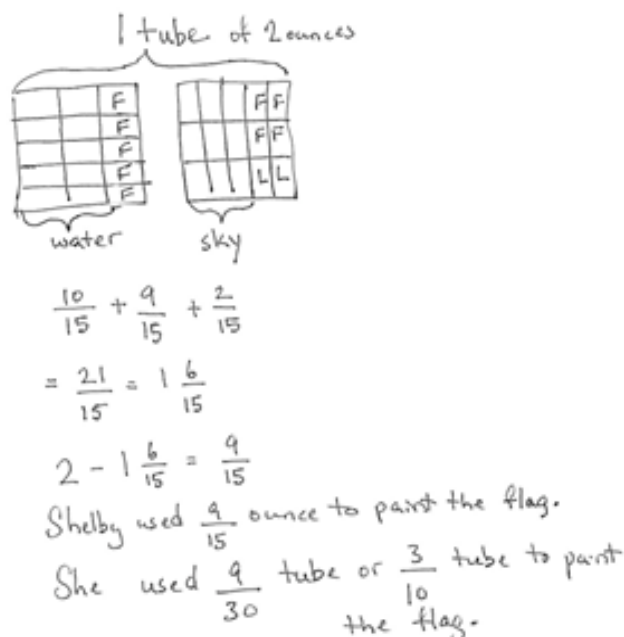 1 tube of 2 ounces
F F F
F
F F F
F
F L L
water sky
10/15 + 9/15 + 2/15
= 21/15 = 1 6/15
2 - 1 6/15 = 9/15
Shelby used 9/15 ounce to paint the flag.
She used 9/30 tube or 3/10 tube to paint
the flag.